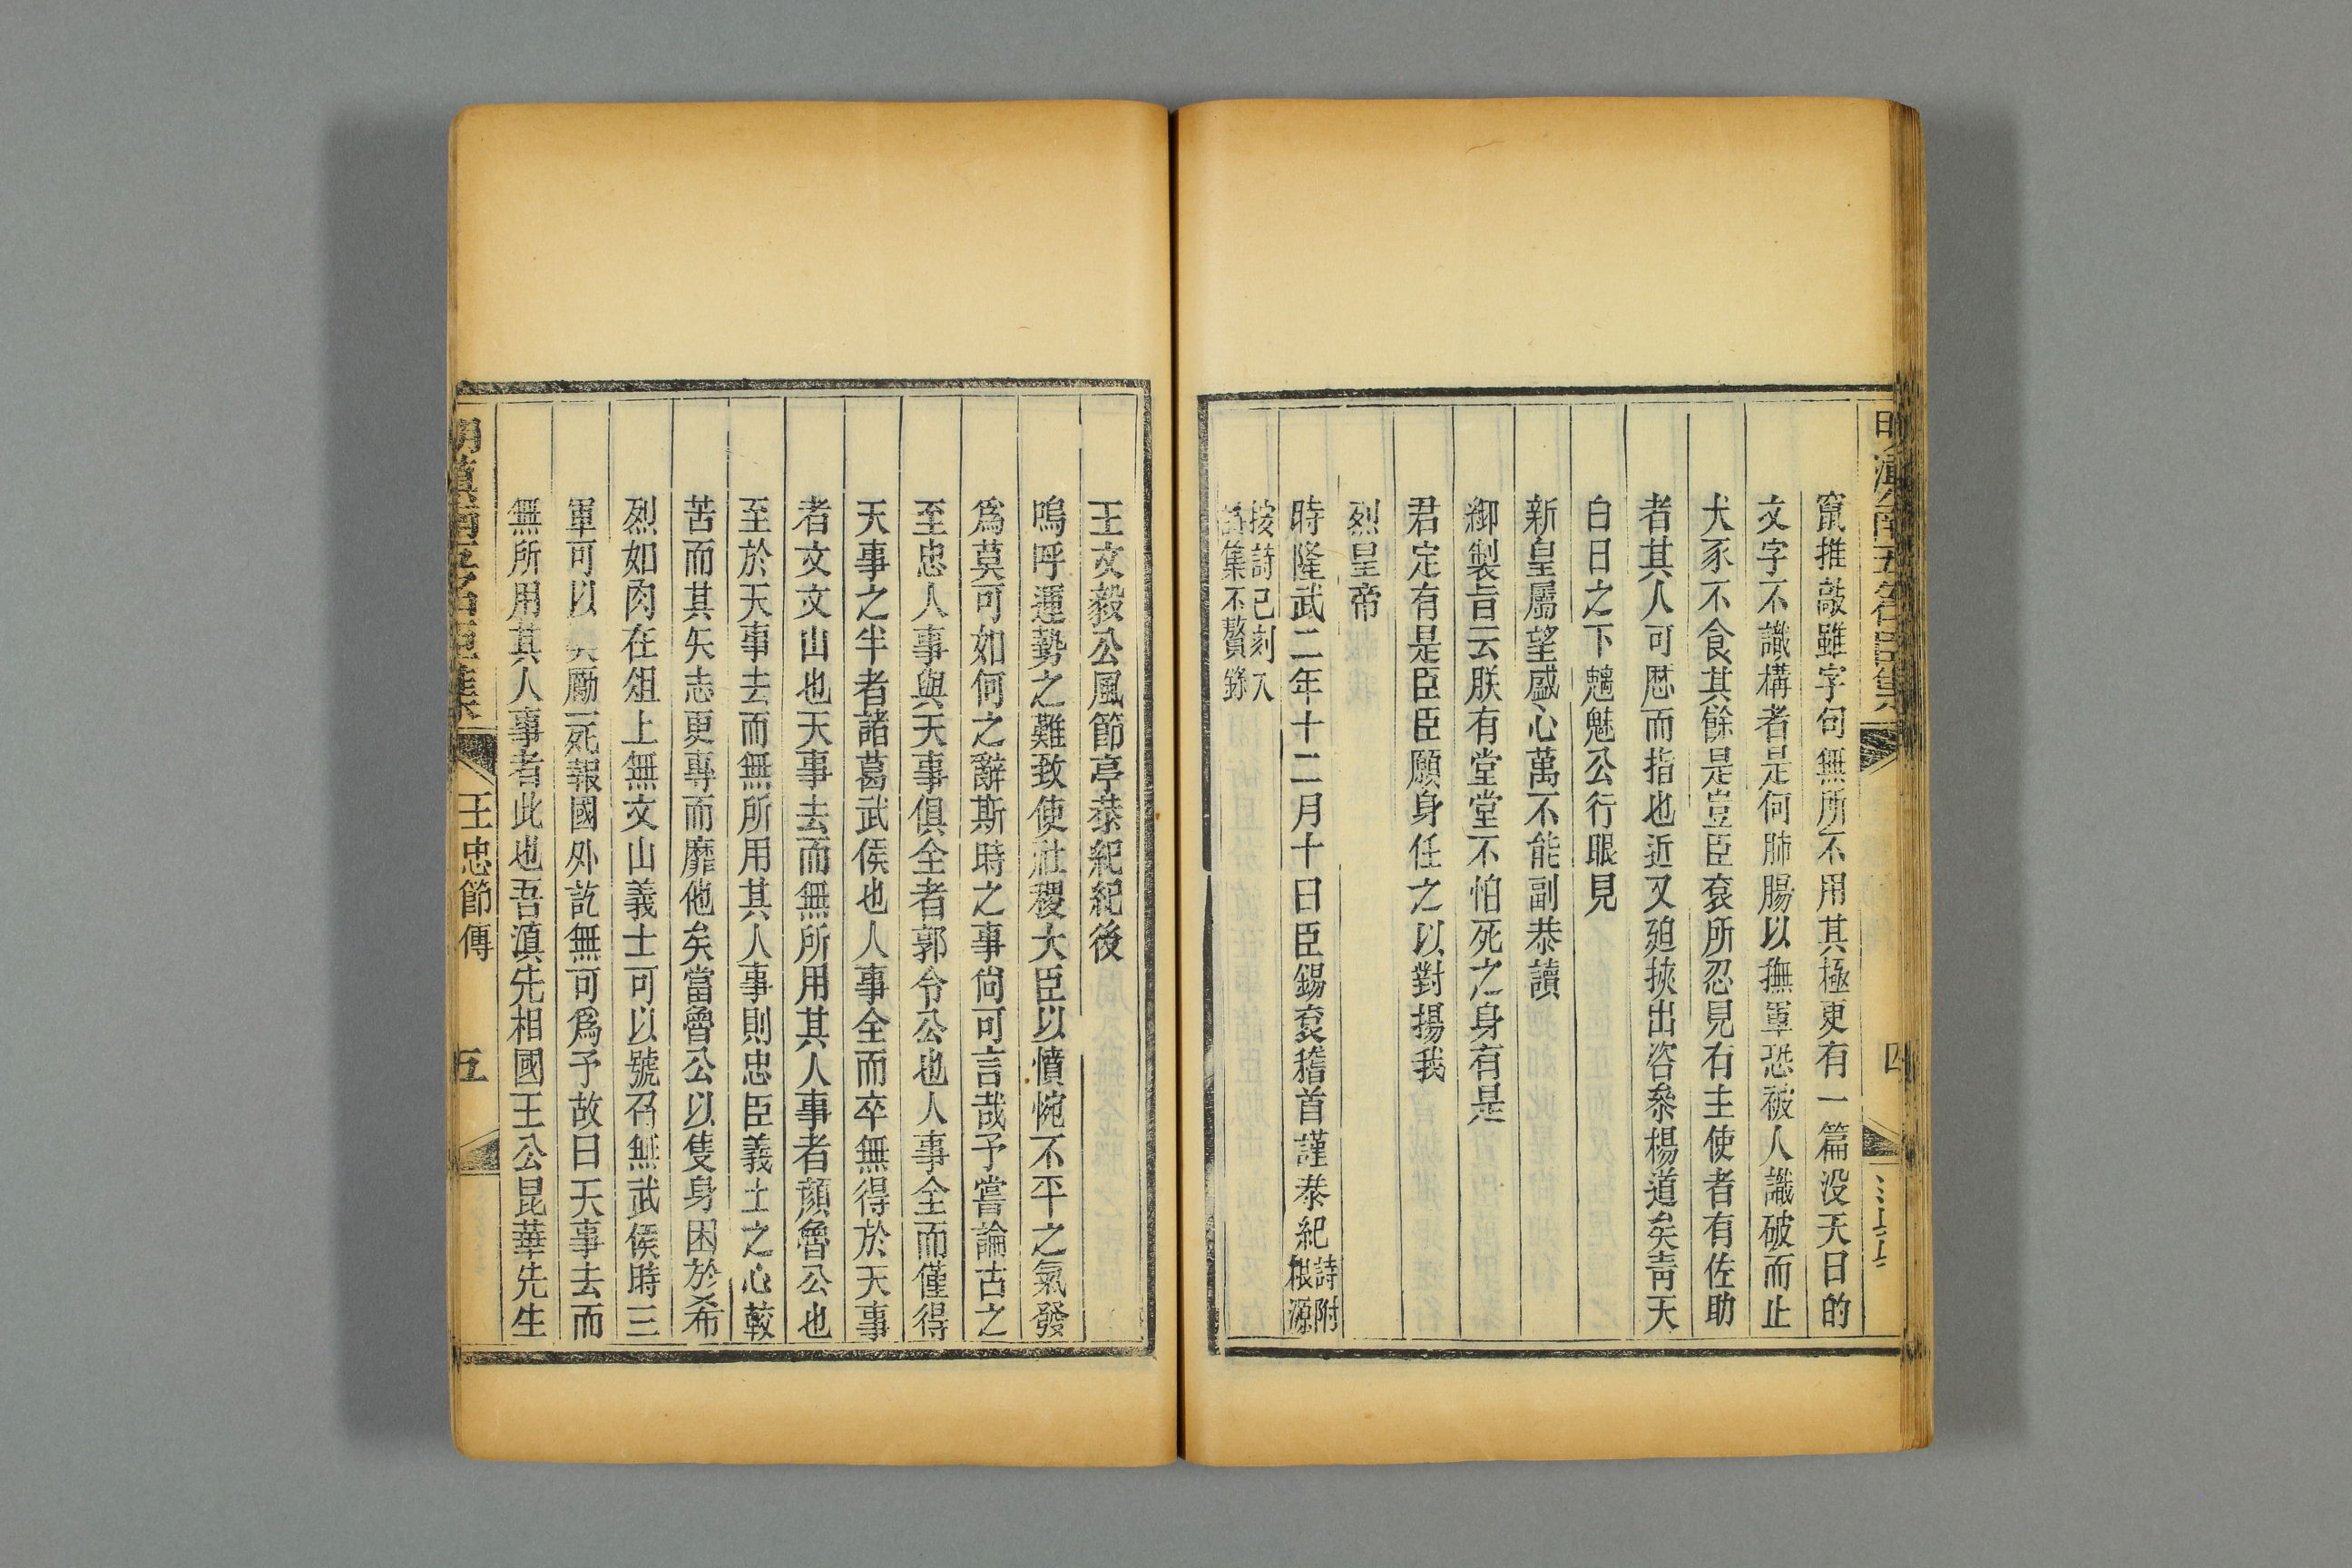 竄推敲雖字句無所不用其極更有一篇没天日的
文字不識構者是何肺腸以撫軍恐被人識破而止
犬豕不食其餘是豈臣袞所忍見右主使者有佐助
者其人可愿而指也近又廹挾出咨叅楊道矣靑天
白日之下魑魅公行眼見
新皇屬望盛心萬不能副恭讀
御製旨云朕有堂堂不怕死之身有是
君定有是臣臣願身任之以對揚我
烈皇帝
時隆武二年十二月十日臣錫袞稽首謹恭紀
詩附
根源
按詩已刻入
集不贅錄
四
王文毅公風節亭恭紀紀後
嗚呼運勢之難致使社稷大臣以憤惋不平之氣發
爲莫可如何之辭斯時之事尙可言哉予嘗論古之
至忠人事與天事俱全者郭令公也人事全而僅得
天事之半者諸葛武侯也人事全而卒無得於天事
者文文山也天事去而無所用其人事者顏魯公也
至於天事去而無所用其人事則忠臣義士之心較
苦而其矢志更專而靡他矣當魯公以隻身困於希
烈如肉在俎上無文山義士可以號召無武侯時三
軍可以厲一死報國外訖無可爲予故曰天事去而
無所用其人事者此也吾滇先相國王公昆華先生
明滇南五名臣集
王忠節傳
五